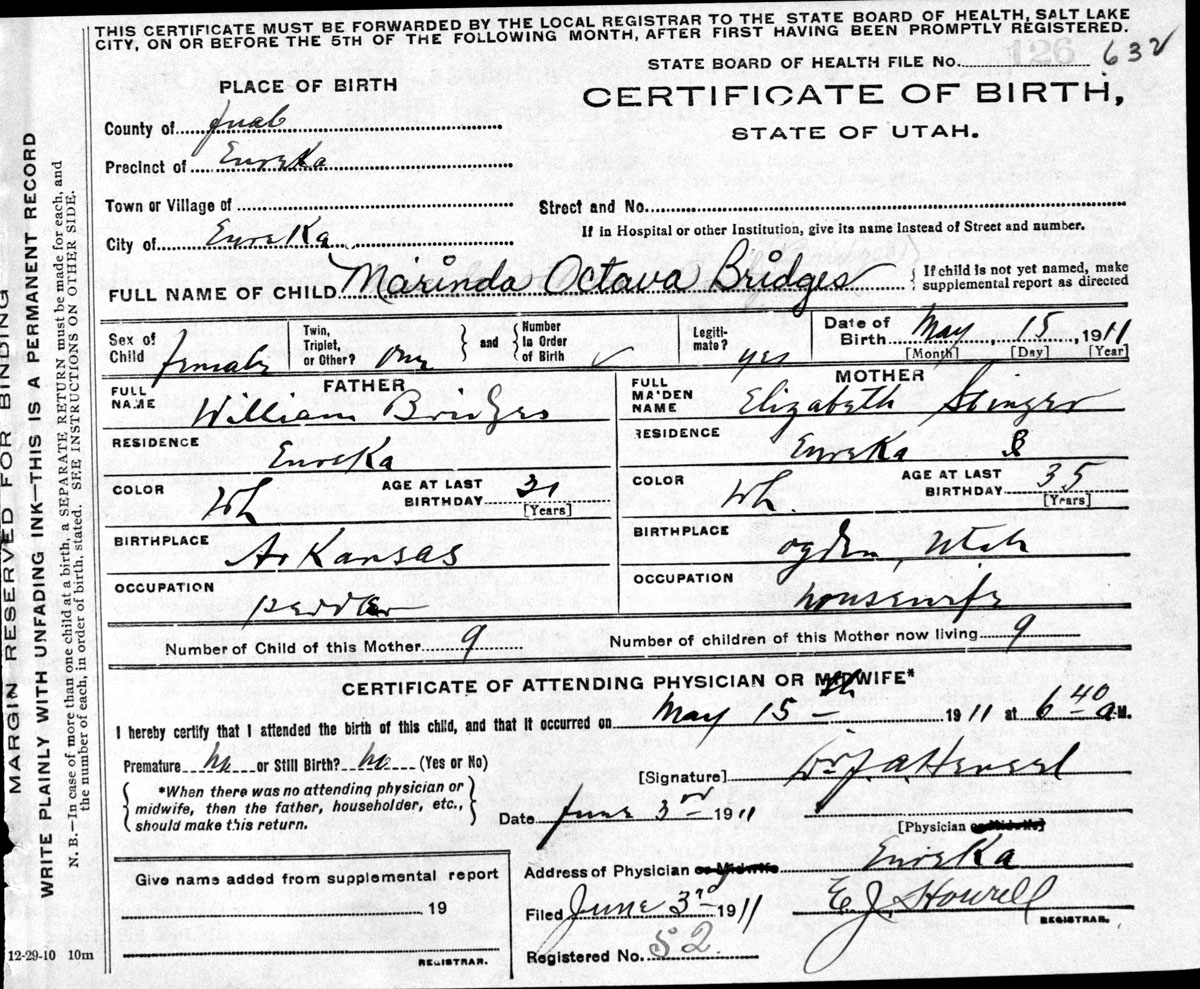 THIS CERTIFICATE MUST BE FORWARDED BY THE LOCAL REGISTRAR TO THE STATE BOARD OF HEALTH, SALT LAKE
CITY, ON OR BEFORE THE 5TH OF THE FOLLOWING MONTH, AFTER FIRST HAVING BEEN PROMPTLY REGISTERED.
STATE BOARD OF HEALTH FILE No. 126 632
PLACE OF BIRTH
CERTIFICATE OF BIRTH,
STATE OF UTAH.
County of Juab
Precinct of Eureka
Town or Village of
Street and No.
City of Eureka
If in Hospital or other Institution, give its name instead of Street and number.
FULL NAME OF CHILD Marinda Octava Bridges
If child is not yet named, make
supplemental report as directed
Sex of Child female
Twin, Triplet, or Other? One
and
Number In Order of Birth
Legiti-mate? yes
Date of Birth May 15, 1911
[Month] [Day] [Year]
FATHER
FULL NAME William Bridges
RESIDENCE Eureka
COLOR Wh AGE AT LAST BIRTHDAY
[Years]
BIRTHPLACE Arkansas
OCCUPATION
MOTHER
FULL MAIDEN NAME Elizabeth
RESIDENCE Eureka
COLOR Wh. AGE AT LAST BIRTHDAY 35
[Years]
BIRTHPLACE Ogden, Utah
OCCUPATION housewife
Number of Child of this Mother 9 Number of children of this Mother now living 9
CERTIFICATE OF ATTENDING PHYSICIAN OR MIDWIFE*
I hereby certify that I attended the birth of this child, and that it occurred on May 15th 1911 at 6 40 a.M.
Premature no or Still Birth? no (Yes or No)
[Signature] Dr J. A.
*When there was no attending physician or
midwife, then the father, householder, etc.,
should make this return.
Date June 3rd 1911
[Physician or Midwife]
Address of Physician or Midwife Eureka
Give name added from supplemental report
, 19
REGISTRAR.
Filed June 3rd 1911 E. J. Howell
REGISTRAR.
Registered No. 52
12-29-10 10m
MARGIN RESERVED FOR BINDING
WRITE PLAINLY WITH UNFADING INK—THIS IS A PERMANENT RECORD
N. B.—In case of more than one child at a birth, a SEPARATE RETURN must be made for each, and
the number of each, in order of birth, stated. SEE INSTRUCTIONS ON OTHER SIDE.